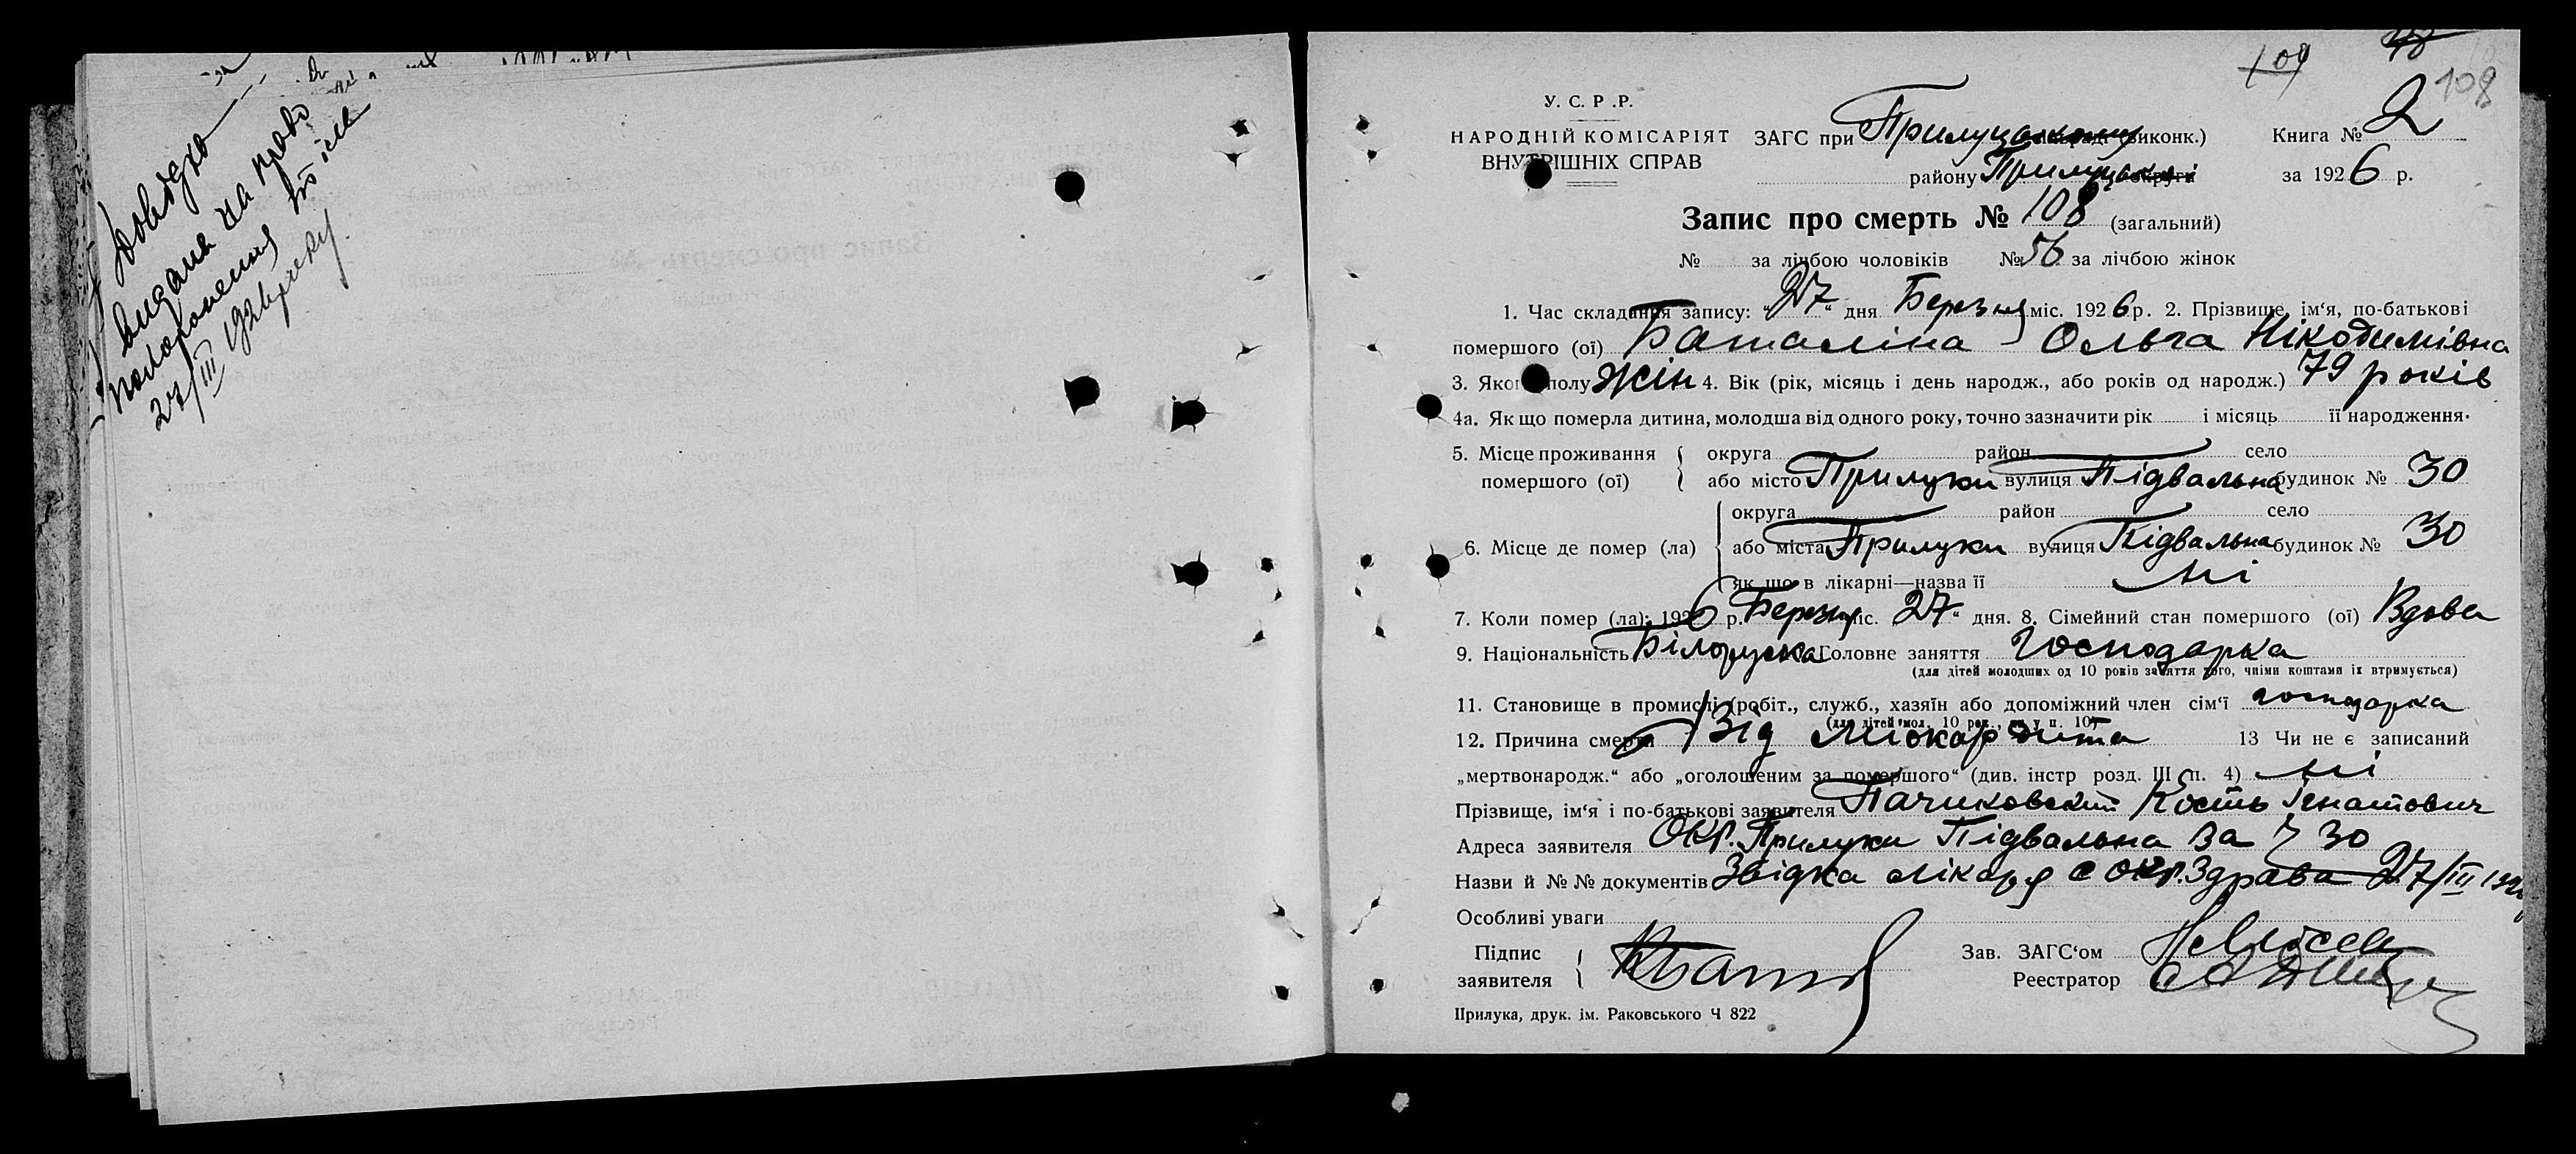 Довідка
видана на право
похоронення тіла
27/III 1926 року.
109
108
У. С. Р. Р.
НАРОДНІЙ КОМІСАРІЯТ
ВНУТРІШНІХ СПРАВ
ЗАГС при Прилуцькому (виконк.)
району Прилуцької округи
Книга № 2
за 1926 р.
Запис про смерть № 108 (загальний)
№ за лічбою чоловіків № 56 за лічбою жінок
1. Час складання запису: "27" дня Березня міс. 1926 р. 2. Прізвище, ім'я, по-батькові
помершого (ої) Баталіна Ольга Нікодимівна
3. Якого полу жін 4. Вік (рік, місяць і день народж., або років од народж.) 79 років
4а. Як що померла дитина, молодша від одного року, точно зазначити рік і місяць її народження.
5. Місце проживання помершого (ої) { округа район село
або місто Прилуки вулиця Підвальна будинок № 30
6. Місце де помер (ла) { округа район село
або міста Прилуки вулиця Підвальна будинок № 30
як що в лікарні—назва її ні
7. Коли помер (ла): 1926 р. Березня міс. "27" дня. 8. Сімейний стан помершого (ої) Вдова
9. Національність Білоруска Головне заняття Господарка
(для дітей молодших од 10 років заняття того, чиїми коштами їх втримується)
11. Становище в промислі (робіт., служб., хазяїн або допоміжний член сім'ї господарка
(для дітей мол. 10 рок., як у п. 10)
12. Причина смерти Від Міокардита 13 Чи не є записаний
„мертвонародж." або „оголошеним за помершого" (див. інстр розд. III п. 4) ні
Прізвище, ім'я і по-батькові заявителя Кость Ігнатович
Адреса заявителя Окр. Прилуки Підвальна 30
Назви й №№ документів Звідка лікаря с окр. Здрава 27/III 1926
Особливі уваги
Підпис
заявителя
Зав. ЗАГС'ом
Реестратор
Прилука, друк. ім. Раковського Ч 822